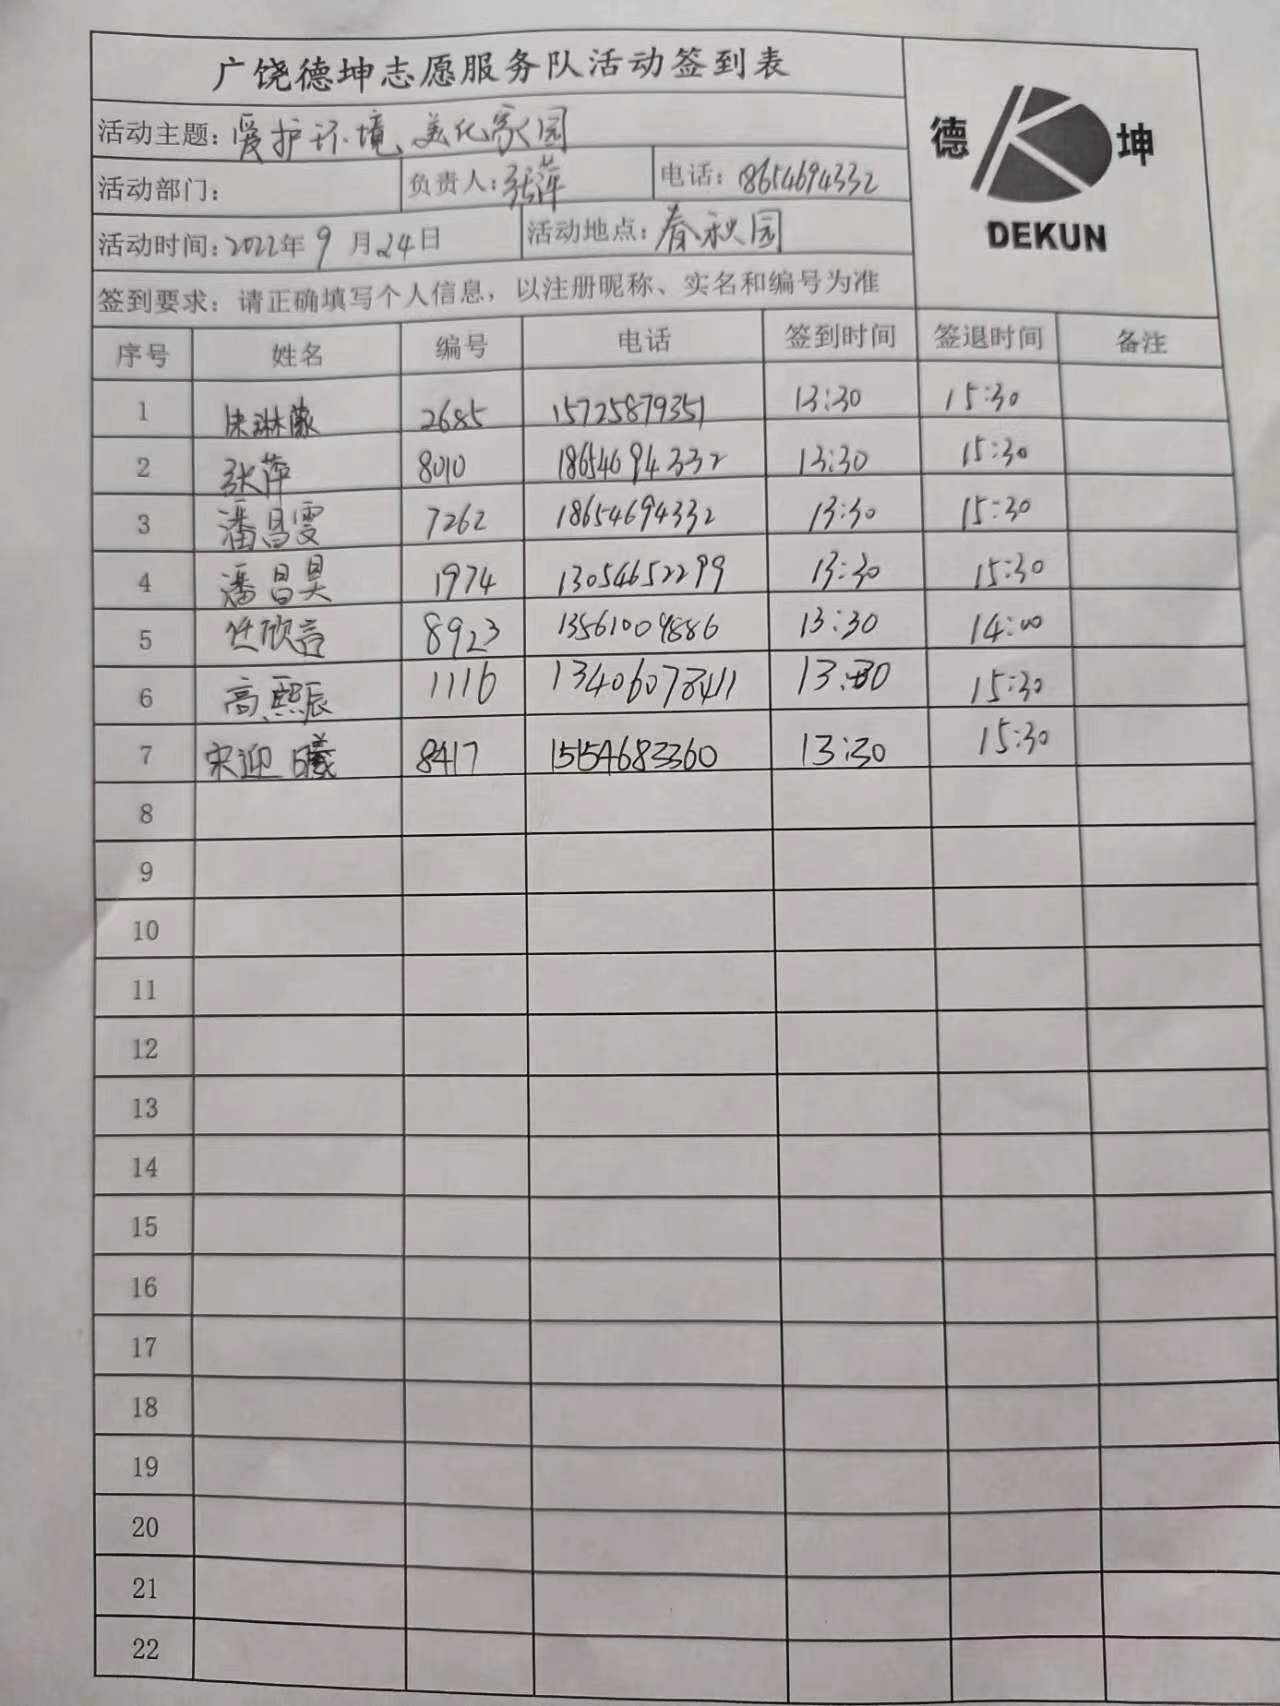 广饶德坤志愿服务队活动签到表
德 坤
DEKUN
活动主题：爱护环境、美化家园
活动部门： 负责人：张萍 电话：18654694332
活动时间：2022年9月24日 活动地点：春秋园
签到要求：请正确填写个人信息，以注册昵称、实名和编号为准
序号 姓名 编号 电话 签到时间 签退时间 备注
1 2685 15725879351 13:30 15:30
2 张萍 8010 18654694332 13:30 15:30
3 潘昌雯 7262 18654694332 13:30 15:30
4 潘昌昊 1974 13054652299 13:30 15:30
5 任欣言 8923 13561004886 13:30 14:00
6 高熙辰 1116 13:30 15:30
7 宋迎曦 8417 15154683360 13:30 15:30
8
9
10
11
12
13
14
15
16
17
18
19
20
21
22